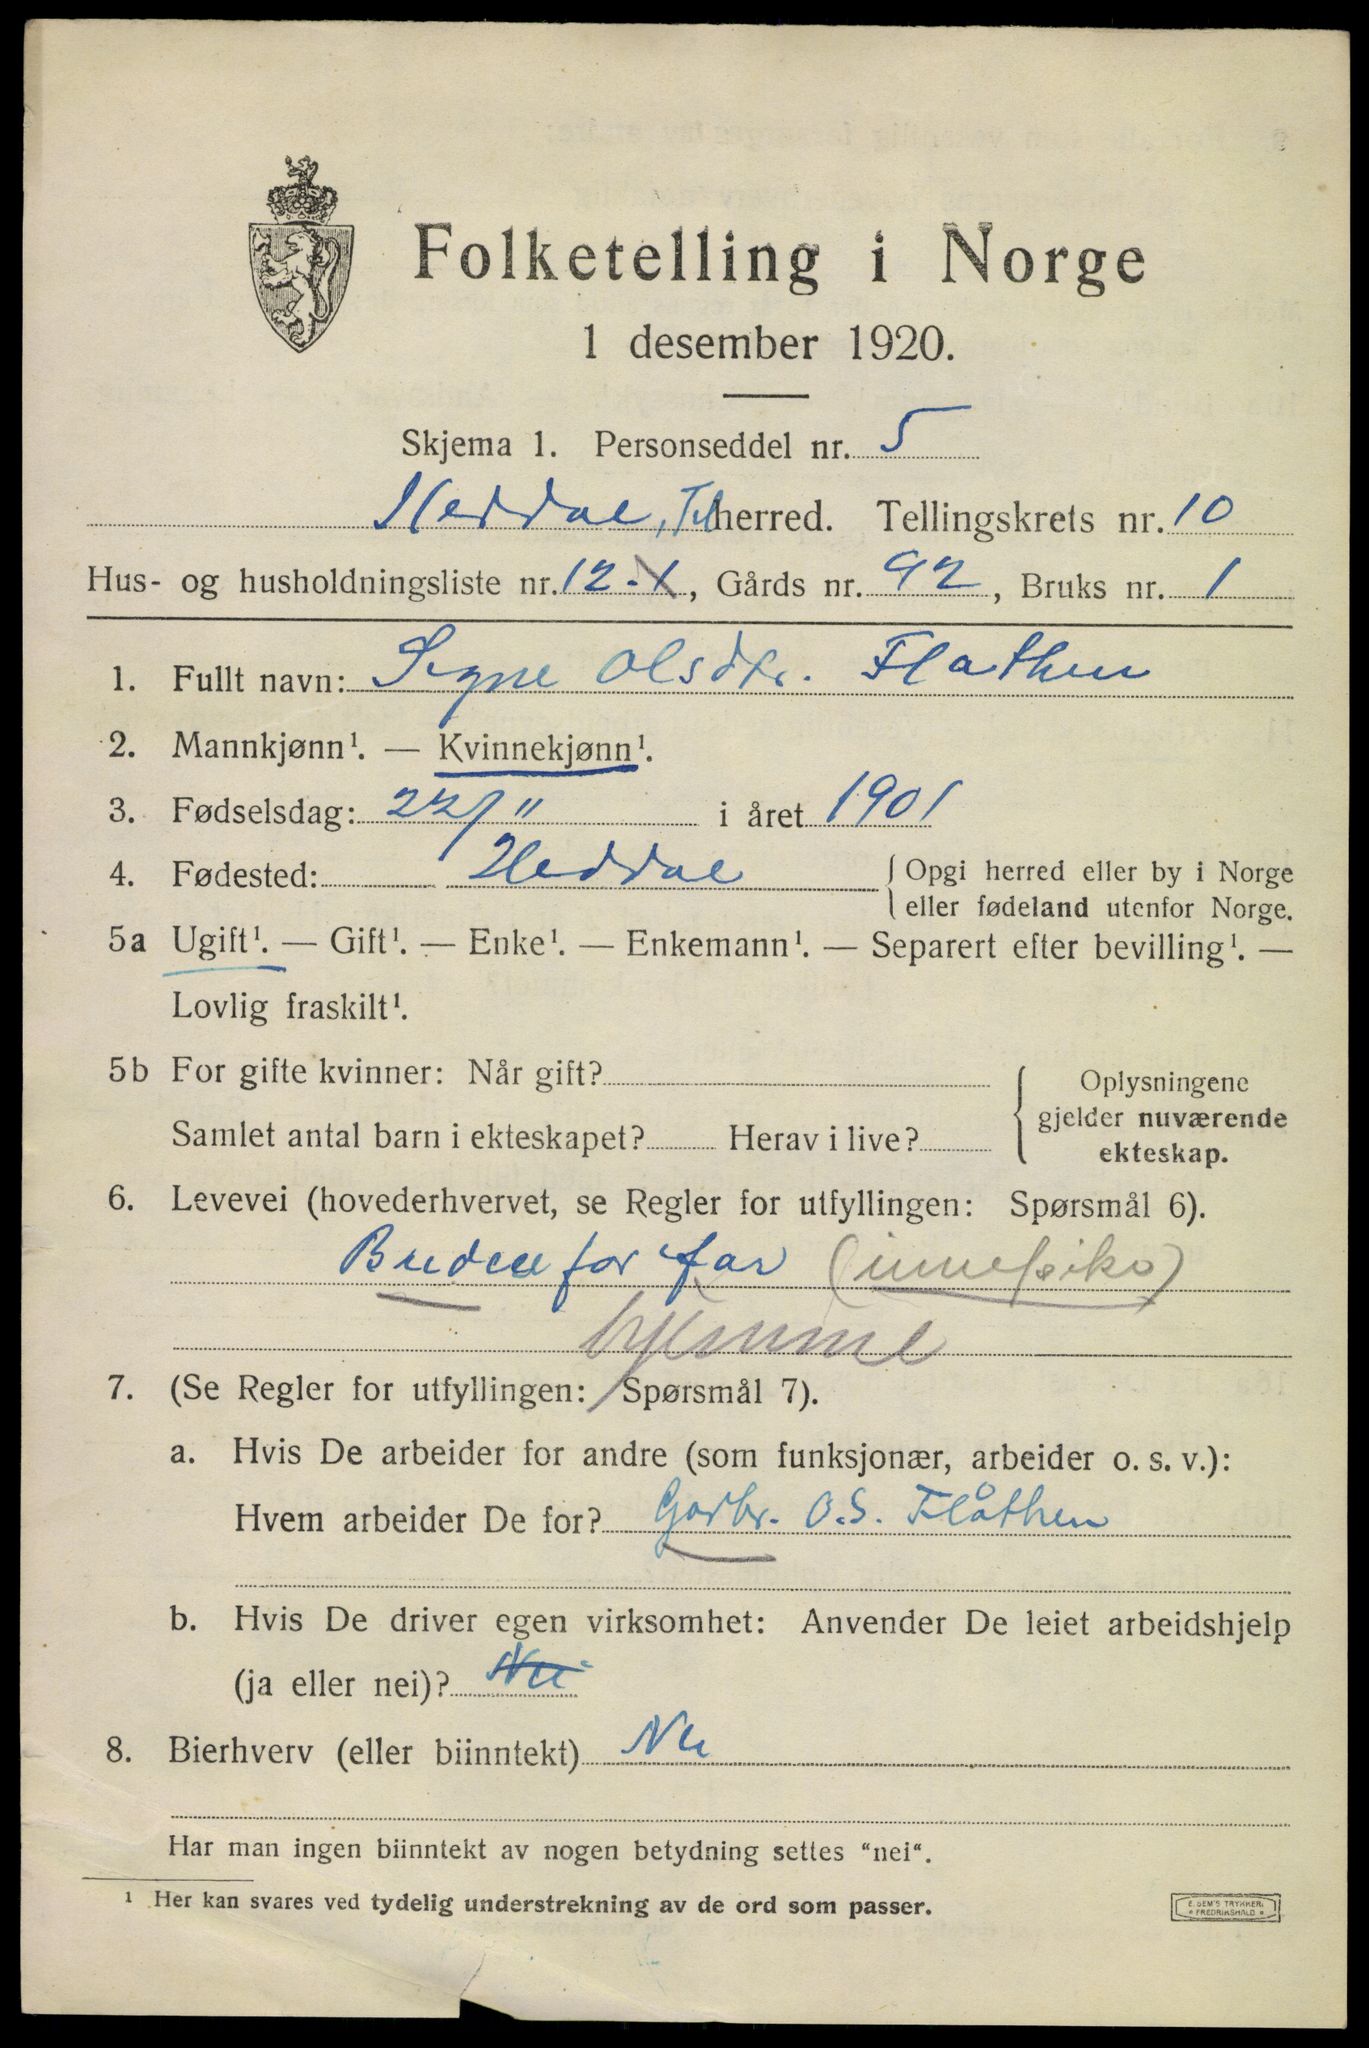 Folketelling i Norge
1 desember 1920.
Skjema 1. Personseddel nr. 5
Heddal, Tel herred. Tellingskrets nr. 10
Hus- og husholdningsliste nr. 12-1, Gårds nr. 92, Bruks nr. 1
1. Fullt navn: Signe Olsdtr. Flathen
2. Mannkjønn¹. — Kvinnekjønn¹.
3. Fødselsdag: 22/11 i året 1901
4. Fødested: Heddal {Opgi herred eller by i Norge
eller fødeland utenfor Norge.
5a Ugift¹. — Gift¹. — Enke¹. — Enkemann¹. — Separert efter bevilling¹. —
Lovlig fraskilt¹.
5b For gifte kvinner: Når gift?
Samlet antal barn i ekteskapet? Herav i live?
Oplysningene
gjelder nuværende
ekteskap.
6. Levevei (hovederhvervet, se Regler for utfyllingen: Spørsmål 6).
for far
hjemme
7. (Se Regler for utfyllingen: Spørsmål 7).
a. Hvis De arbeider for andre (som funksjonær, arbeider o. s. v.):
Hvem arbeider De for? Gardbr. O.S. Flåthen
b. Hvis De driver egen virksomhet: Anvender De leiet arbeidshjelp
(ja eller nei)? Nei
8. Bierhverv (eller biinntekt) Nei
Har man ingen biinntekt av nogen betydning settes "nei".
¹ Her kan svares ved tydelig understrekning av de ord som passer.
E. SEM'S TRYKKERI
FREDRIKSHALD